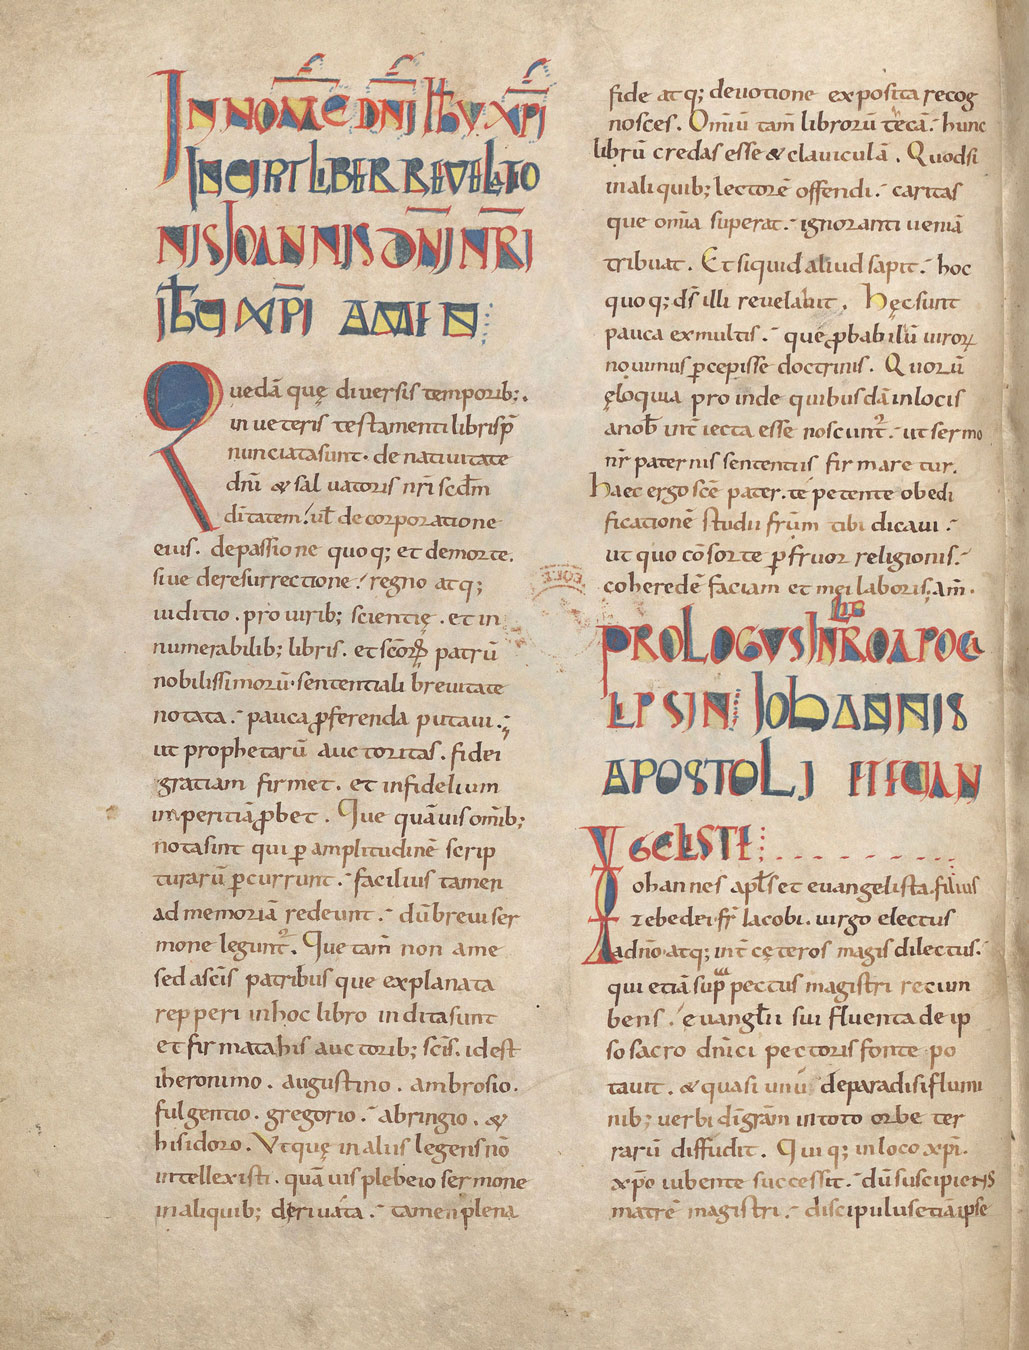 IN NOM̄E DN̄I IHU XPI
INCIPIT LIBER REVELATIO
NIS IOANNIS DN̄I NR̄I
IHU XPI AMEN
Quedā quę diversis temporib;.
in veteris testamenti librisp̄
nunciatasunt. de nativitate
dn̄i & salvatoris nr̄i scdm̄
ditatem. ul̄ de corporatione
eius. depassione quoq; et demorte.
sive deresurrectione. regno atq;
iuditio. pro virib; scientię. et in
numerabilib; libris. et sc̄orꝝ patrū
nobilissimorū. sententiali brevitate
notata. pauca ꝓferenda putavi.
ut prophetarū auctoritas. fidei
gratiam firmet. et infidelium
inperitiā ꝓbet. Que quāvis om̄ib;
notasint qui ꝑ amplitudinē scrip
turarū ꝑcurrunt. facilius tamen
ad memoriā redeunt. dū brevi ser
mone legunt᷒. Que tam̄ non a me
sed a sc̄is patribus que explanata
repperi in hoc libro inditasunt
et firmata his auctorib; sc̄is. id est
iheronimo. augustino. ambrosio.
fulgentio. gregorio. abringio. &
hisidoro. Utquę in aliis legens nō
intellexisti. quā vis plebeio sermone
in aliquib; derivata. tamen plena
fide atq; devotione exposita recog
nosces. Om̄iū tam̄ librorū tecā. hunc
librū credas esse & claviculā. Quodsi
in aliquib; lectorē offendi. caritas
que om̄ia superat. ignoranti veniā
tribuat. Et siquid aliud sapit. hoc
quoq; ds̄ illi revelabit. Hęc sunt
pauca ex multis. que ꝓbabiliū virorꝝ
novimus ꝑcepisse doctrinis. Quorū
ęloquia proinde quibusdā in locis
a nob̄ int̄iecta esse noscunt᷒. ut sermo
nr̄ paternis sententiis firmaretur.
Haec ergo sc̄e pater. te petente ob edi
ficationē studii frū̄m tibi dicavi.
ut quo cōsorte ꝑfruor religionis.
coheredē faciam et mei laboris. am̄.
PROLOGUS IN LIBRO APOCA
LIPSIN IOHANNIS
APOSTOLI ET EUAN
GELISTE
Iohannes apl̄s et evangelista. filius
zebedei. fr̄ Iacobi. virgo electus
a dn̄o. atq; int̄ cęteros magis dilectus.
qui etiā sup̄ pectus magistri recum
bens. evangl̄ii sui fluenta de ip
so sacro dn̄ici pectoris fonte po
tavit. & quasi unū de paradisi flumi
nib; verbi dī grām in toto orbe ter
rarū diffudit. Qui q; in loco xp̄i.
xp̄o iubente successit. dū suscipiens
matrē magistri. discipulus etiā ipse